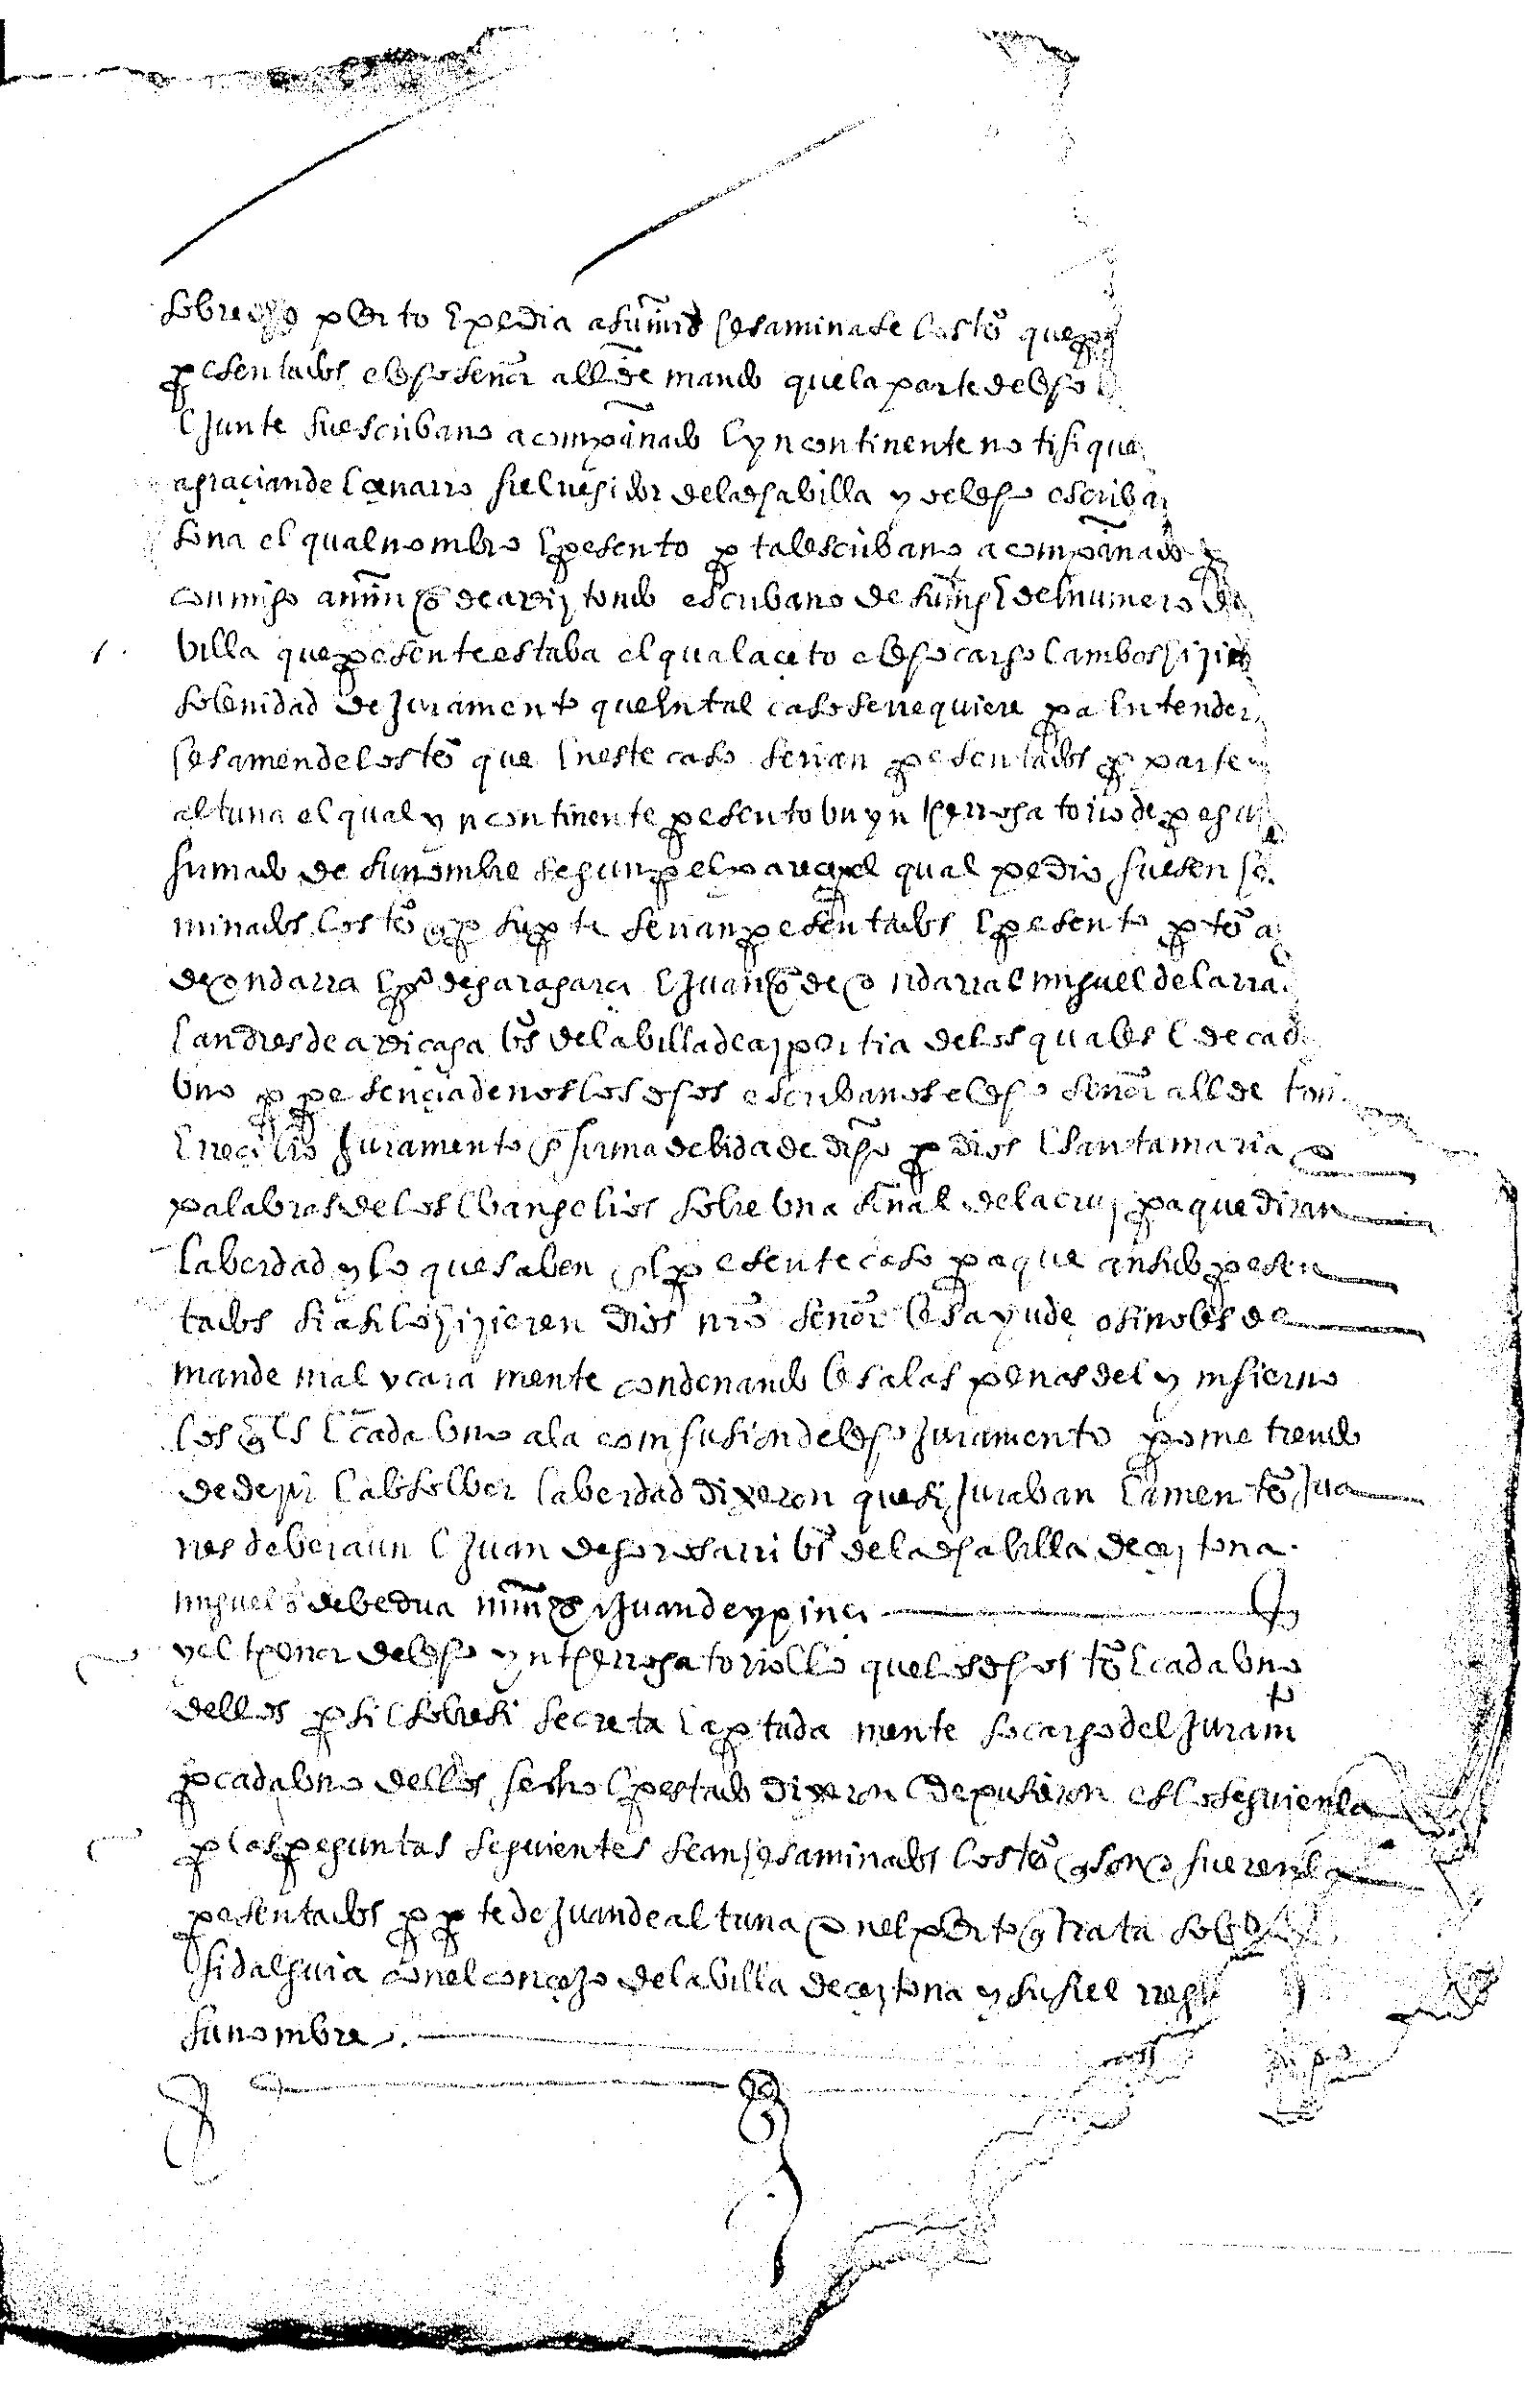 sobre dho pleito e pedia a su md esaminase los tos que
presentados e el dho señor allde mando que la parte del dho
e junte su escribano acompañado e yncontinente notifique
a graçian de çanarro fiel rregidor de la dha billa y del dho escriba
sona el qual nombro e presento por tal escribano acompañado
conmigo a min xoz de arriztondo escribano de su mag e del numero de
billa que presente estaba el qual aceto el dho cargo e ambos hizie
solenidad de juramento que en tal caso se rrequiere pa entender
esamen de los tos que en este caso serian presentados por parte
altuna el qual yncontinente presento un ynterrogatorio de pregu
firmado de su nombre segun por el pareçe el qual pedio fuesen esa
minados los tos q por su pte serian presentados e presento por tos a
de ondarra e po de garagarça e juan xoz de ondarra e miguel de larra
e andres de ardicaga bos de la billa de azpeitia de los quales e de cad
uno por presençia de nos los dhos escribanos el dho señor allde tom
e rreçibio juramento en forma debida de drho por dios e santa maria e
palabras de los ebangelios sobre una señal de la cruz pa que diran
la berdad y lo que saben en el presente caso pa que an sido presen
tados si asi lo hizieren dios nro señor les ayude o si no les de
mande mal y cara mente condenando les a las penas del ynfierno
los qles e cada uno a la comfusion del dho juramento prometiendo
de dezir e absolber la berdad dixeron que si juraban e amen tos jua
nes de beraun e juan de gorosarri bos de la dha billa de çeztona
miguel de bedua min xoz juan de ypinça
y el thenor del dho ynterrogatorio e lo que los dhos tos e cada uno
dellos por si e sobre si secreta e apartada mente so cargo del juramto
por cada uno dellos fecho e prestado dixeron e depusieron es lo seguiente
por las preguntas seguientes sean esaminados los tos q son o fueren
presentados por pte de juan de altuna en el pleito q trata sobre
fidalguia con el conçejo de la billa de çeztona y su fiel rregi
su nombre